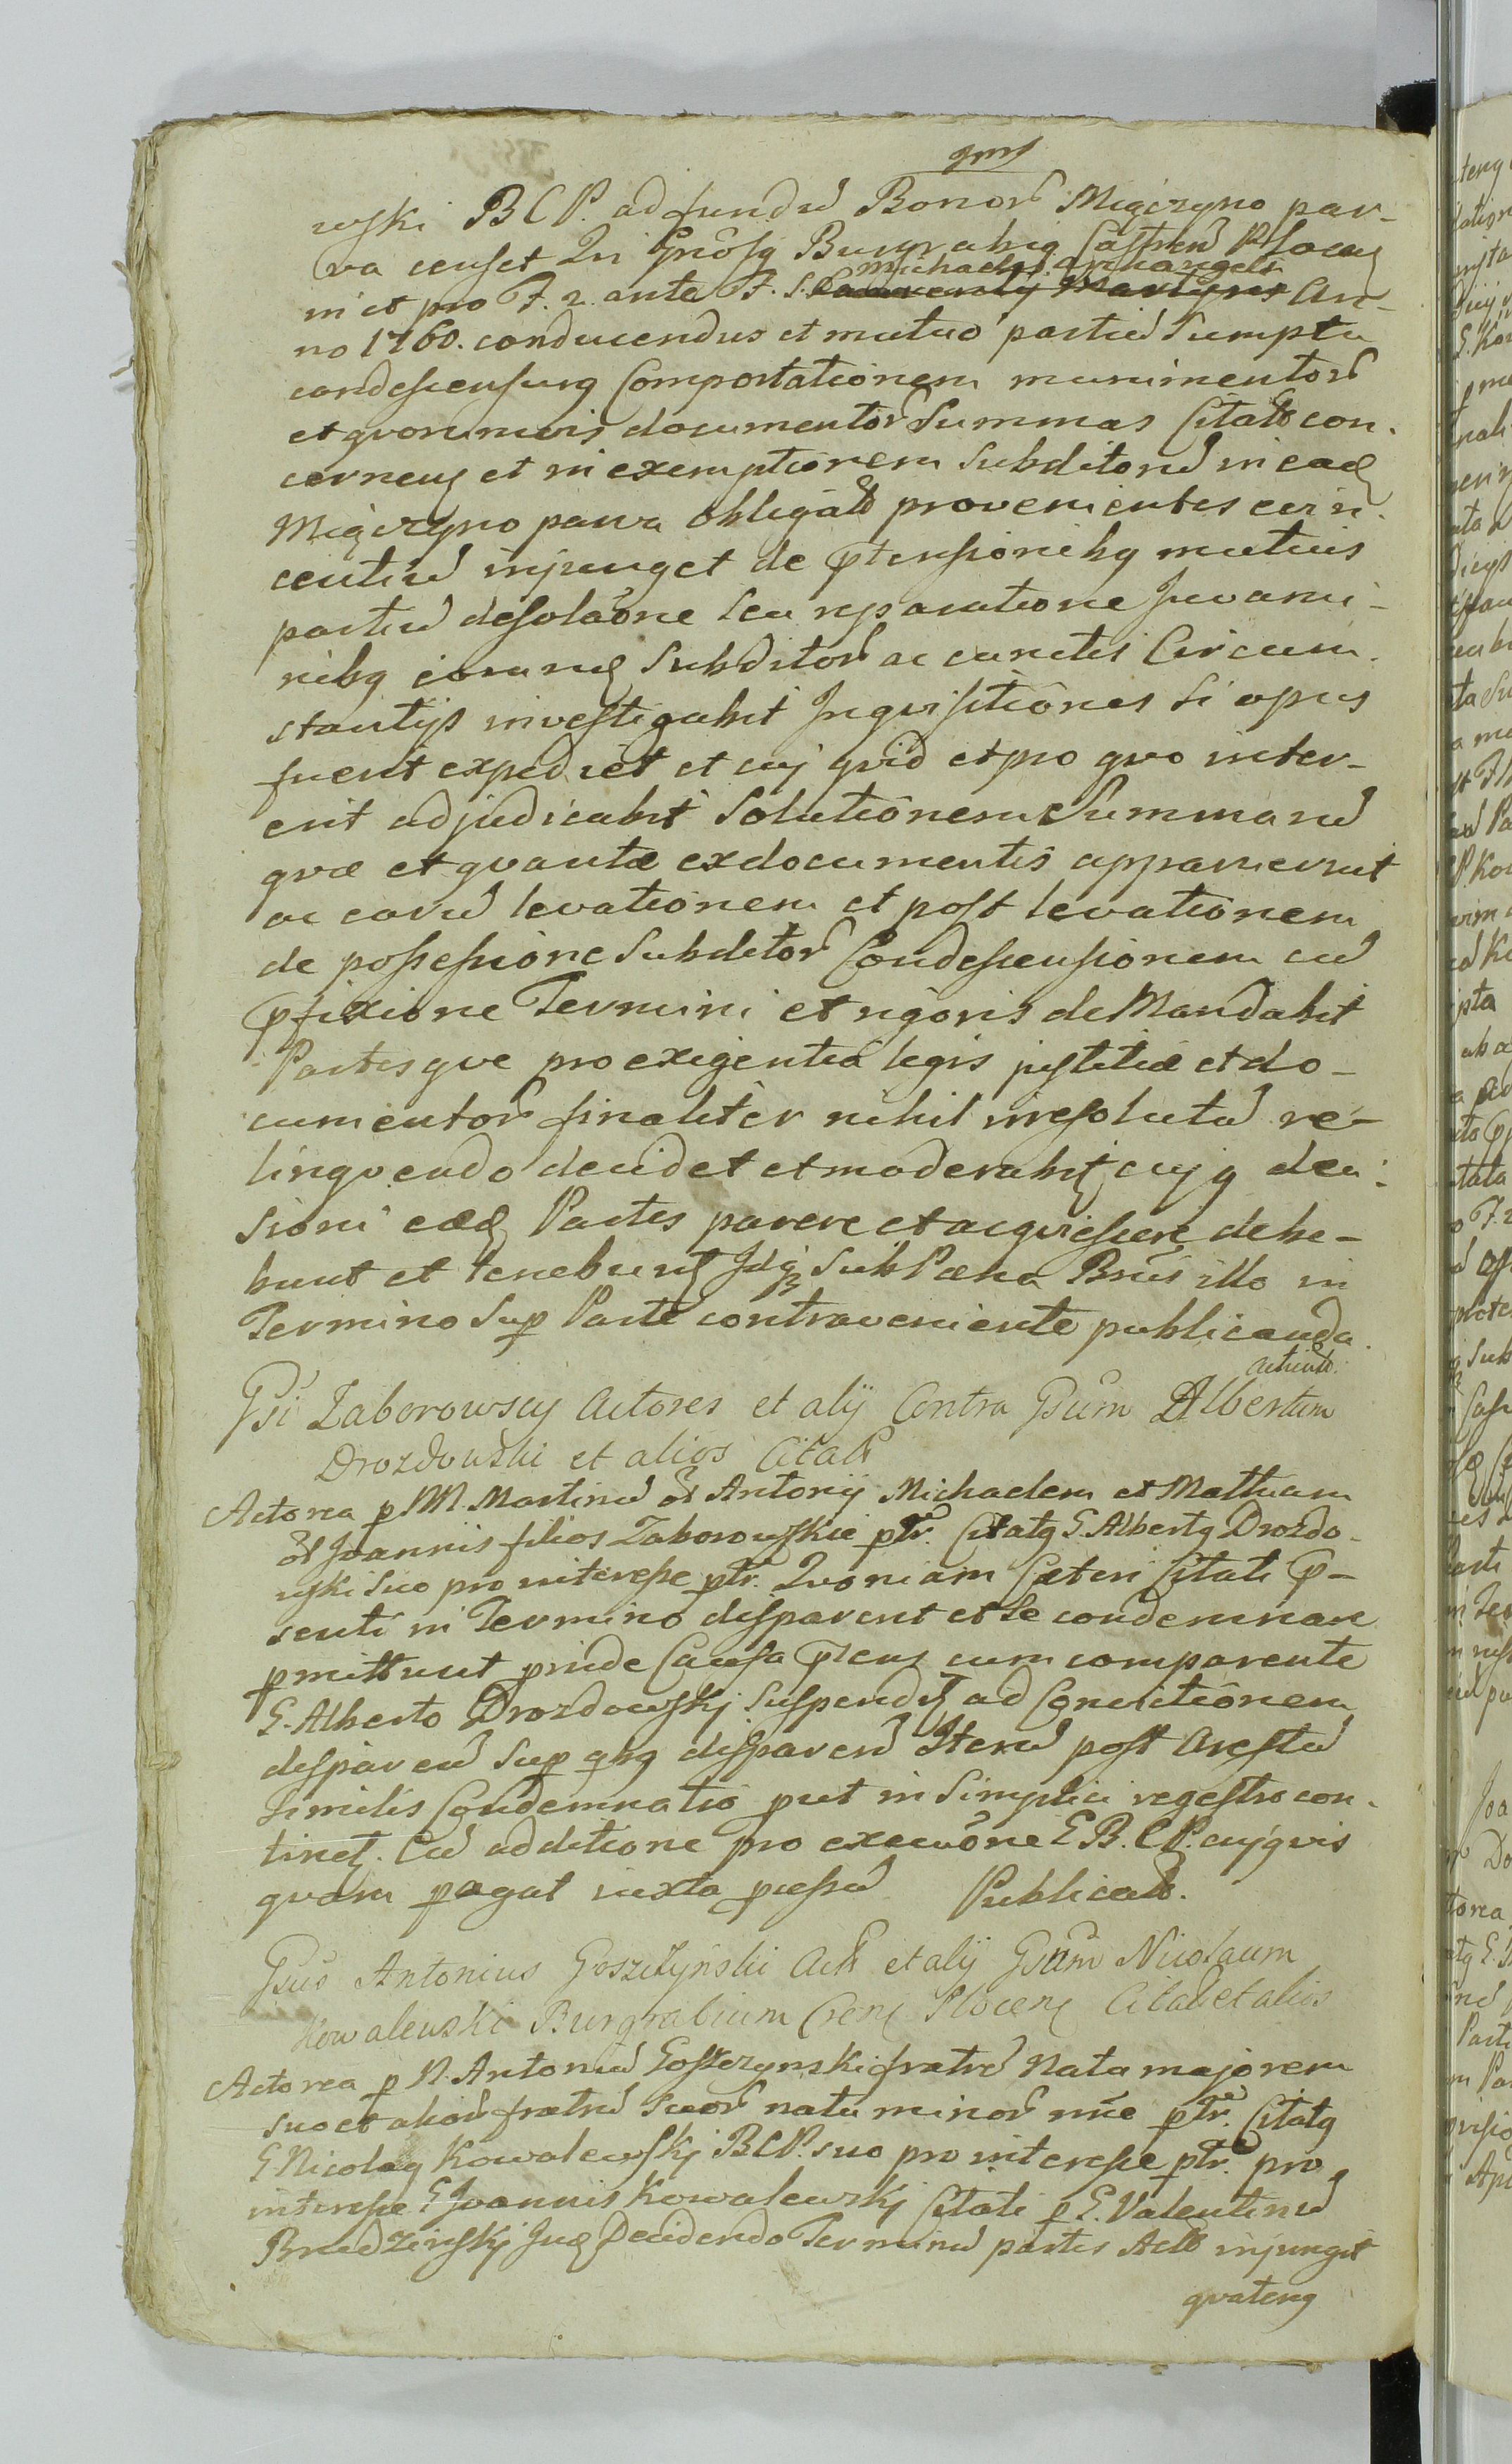 wski BCP. ad fundū Bonor Miączyno par-
va censet Qui Gnōsq Burgrabiq Castren Plocen
in et pro F. 2. ante F. S. Laurentij Martyris Michaelis Archangeli An-
no 1760. conducendus et mutuo partiū Sumptu
condescensurq Comportationem munimentor
et quorumvis documentor Summas Citat con-
cernen et in exemptionem Subditorū in ead
Miączyno parva obligat provenientes evin-
centiū injunget de ptensionibq mutuis
partiū desolaōne seu reparatione Juvami-
nibq eorumq Subditor ac cunctis Circum-
stantijs investigabit Inqvisitiōnes si opus
fuerit expediet et cuj qvid et pro qvo inter-
erit adjudicabit Solutiōnem Summarū
qvæ et qvantæ ex documentis apparuerint
ac earū levatiōnem et post levatiōnem
de possessione Subditor Condescensionem cū
pfixione Termini et rigoris de Mandabit
Partesqve pro exigentia legis justitiæ et do-
cumentor finaliter nihil irresolutū re-
linqvendo decidet et moderabit cujq deci-
sioni eæd Partes parere et acqviescere debe-
bunt et tenebunt Idq Sub Pæna Bnis illo in
Termino Sup Parte contraveniente publicanda
Acticat.
Gsi Zaborowscy Actores et alij Contra Gsum Albertum
Drozdowski et alios Citat
Actorea p MM. Martinū ol Antonij Michaelem et Mathiam
ol Joannis filios Zaborowskie ptr. Citatq G. Albertq Drozdo-
wski suo pro interesse ptr. Qvoniam Cæteri Citati p-
senti in Termino disparent et se condemnare
pmittunt pinde Causa pens cum comparente
G. Alberto Drozdowskj Suspendit ad Convictiōnem
disparen Sup qbq disparen Iterū post Arestū
Similis Condemnatio put in Simplici regestro con-
tinet. Cū additione pro execuōne G B. C P. cujqvis
qvam pagat iuxta pcessū Publicat.
Gsus Antonius Goszczyński Act et alij Gsum Nicolaum
Kowalewski Burgrabium Cren Plocen Citat et alios
Actorea p N. Antoniū Goszczynski fratrū Natu majorem
suo et alior fratrū suor natu minor nnē ptr. Citatq
G Nicolaq Kowalewskj BCP. suo pro interesse ptr. pro
interesse G Joannis Kowalewskj Citati p G. Valentinū
Brudzinskj Jud Decidendo Terminū partis Act injungit
qvatenq